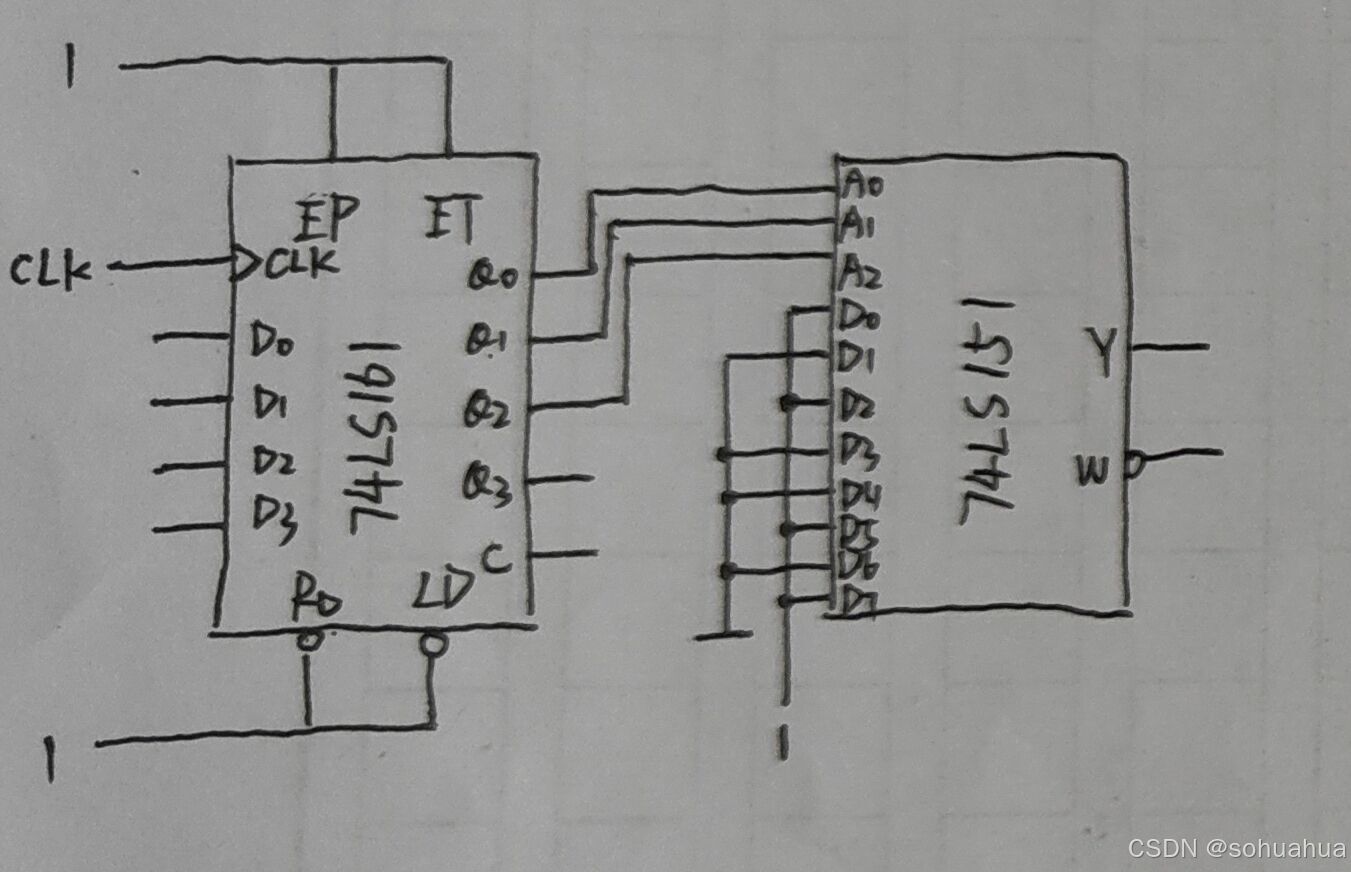 1
EP ET
CLK CLK
D0
D1
D2
D3
74LS161
Q0
Q1
Q2
Q3
C
RD LD
1
A0
A1
A2
D0
D1
D2
D3
D4
D5
D6
D7
74LS151
Y
W
1
CSDN @sohuahua